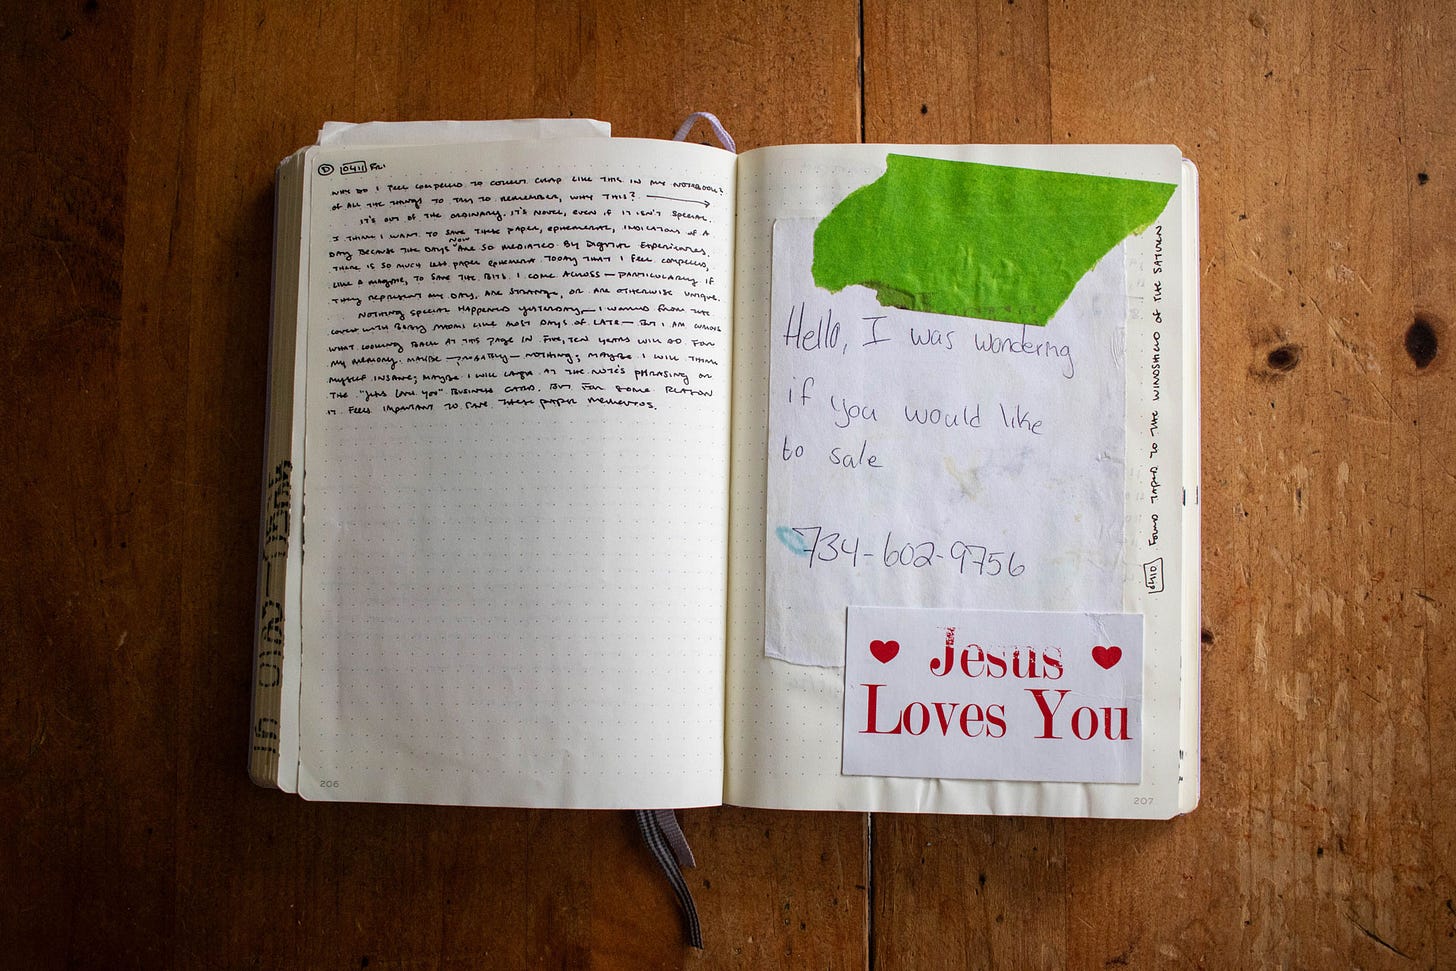 D 0411 FRI
WHY DO I FEEL COMPELLED TO COLLECT CRAP LIKE THIS IN MY NOTEBOOK?
OF ALL THE THINGS TO TRY TO REMEMBER, WHY THIS?
IT'S OUT OF THE ORDINARY. IT'S NOVEL, EVEN IF IT ISN'T SPECIAL.
I THINK I WANT TO SAVE THESE PAPER, EPHEMERATE, INDICATIONS OF A
DAY BECAUSE THE DAYS NOW ARE SO MEDIATED BY DIGITAL EXPERIENCES.
THERE IS SO MUCH LESS PAPER EPHEMERA TODAY THAT I FEEL COMPELLED,
LIKE A MAGPIE, TO SAVE THE BITS I COME ACROSS — PARTICULARLY IF
THEY REPRESENT MY DAY, ARE STRANGE, OR ARE OTHERWISE UNIQUE.
NOTHING SPECIAL HAPPENED YESTERDAY — I WORKED FROM THE
COUCH WITH BEING MOM LIKE MOST DAYS OF LATE — BUT I AM CURIOUS
WHAT LOOKING BACK AT THIS PAGE IN FIVE, TEN YEARS WILL DO FOR
MY MEMORY. MAYBE — PROBABLY — NOTHING; MAYBE I WILL THINK
MYSELF INSANE; MAYBE I WILL LAUGH AT THE NOTE'S PHRASING OR
THE "JESUS LOVES YOU" BUSINESS CARD. BUT FOR SOME REASON
IT FEELS IMPORTANT TO SAVE THESE PAPER MEMENTOS.
206
Hello, I was wondering
if you would like
to sale
734-602-9756
Jesus
Loves You
0410 FOUND TAPED TO THE WINDSHIELD OF THE SATURN
207